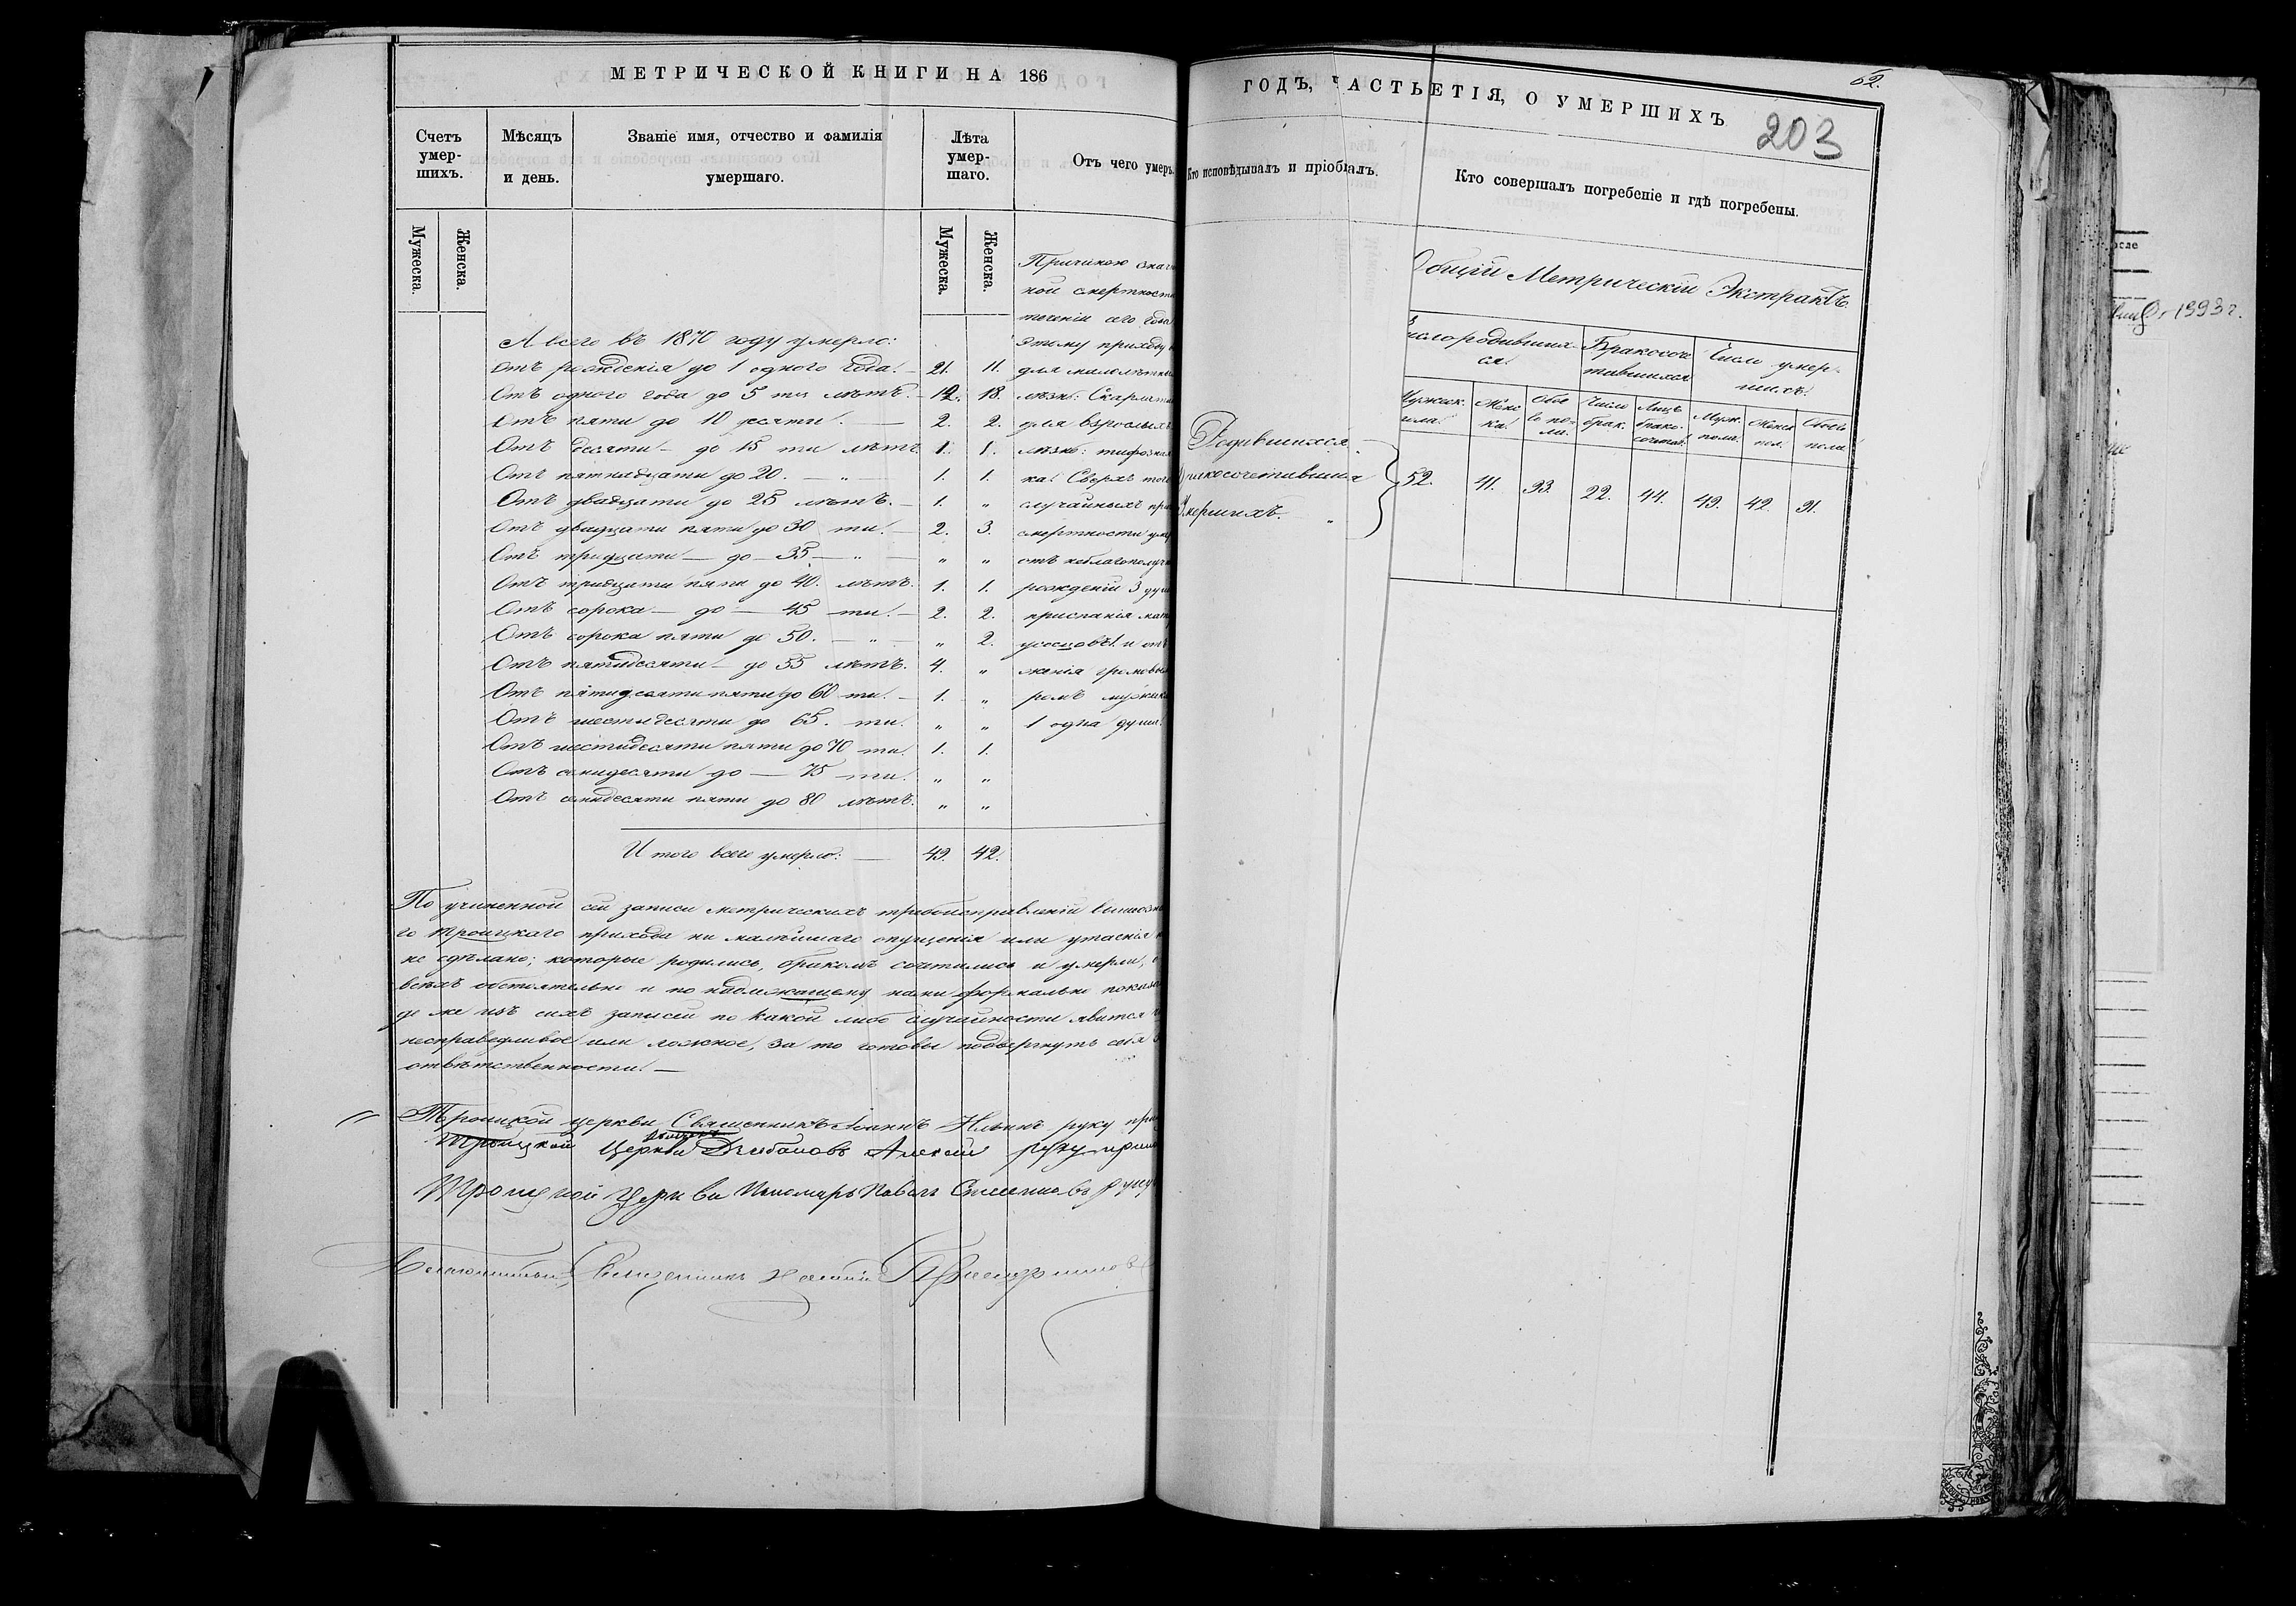 МЕТРИЧЕСКОЙ КНИГИ НА 186
Счетъ умер-шихъ.
Мѣсяцъ и день.
Званіе имя, отчество и фамилія умершаго.
Лѣта умер-шаго.
Отъ чего умеръ.
Мужеска.
Женска.
Мужеска.
Женска.
А всего въ 1870 году умерло:
Отъ рожденія до 1 одного года. — 21. 11.
Отъ одного года до 5 ти лѣтъ. — 12. 18.
Отъ пяти до 10 десяти. — 2. 2.
Отъ десяти — до 15 ти лѣтъ. 1. 1.
Отъ пятнадцати до 20. — „ — 1. 1.
Отъ двадцати до 25 лѣтъ. — 1. „
Отъ двадцати пяти до 30 ти. — 2. 3.
Отъ тридцати — до — 35 — „ „ „
Отъ тридцати пяти до 40. лѣтъ. 1. 1.
Отъ сорока — до — 45 — ти. — 2. 2.
Отъ сорока пяти до 50. — „ — „ 2.
Отъ пятидесяти — до 55 лѣтъ. 4. „
Отъ пятидесяти пяти до 60 ти. — 1. „
Отъ шестидесяти до 65. ти. „ „
Отъ шестидесяти пяти до 70 ти. 1. 1.
Отъ семидесяти до — 75 — ти. „ „
Отъ семидесяти пяти до 80 лѣтъ. „ „
И того всего умерло: — 49. 42.
Причиною
ной смертности
теченіи сего года
этому приходу
для малолѣтны
лѣзнь: Скарлати
для взрослыхъ
лѣзнь: тифозная
ка. Сверхъ того
случайныхъ
смертности
отъ неблагополуч
рожденій 3 душ
приспанія
и отъ
женія громовы
1 одна душа.
По учиненной сей записи метрическихъ требоисправленій
го Троицкаго прихода ни малѣйшаго опущенія или утаенія
не сдѣлано; которые родились, бракомъ сочетались и умерли,
всѣмъ обстоятельно и по надлежащему нами формально показа
де же изъ сихъ записей по какой либо случайности явится
несправедливое или ложное, за то готовы подвергнуть себя
отвѣтственности. —
Троицкой церкви Священникъ Іоаннъ Ильинъ руку при
Троицкой Церкви Алексей руку прило
Троицкой Церкви Пономарь Павелъ руку
Священникъ
ГОДЪ, ЧАСТЬ ТРЕТІЯ, О УМЕРШИХЪ
62.
203
Кто исповѣдывалъ и пріобщалъ.
Кто совершалъ погребеніе и гдѣ погребены.
Общій Метрическій Экстрактъ
Число родивших-ся.
Бракосоче-тавшихся
Число умер-шихъ.
Мужеск. пола.
Женс ка.
Обое го по-ла.
Число брак.
Лицъ брако-сочетав.
Муж. пола.
Женск. пол.
Обоего пола
Родившихся
Бракосочетавшихся
Умершихъ. „
52. 41. 93. 22. 44. 49. 42. 91.
1993 г.